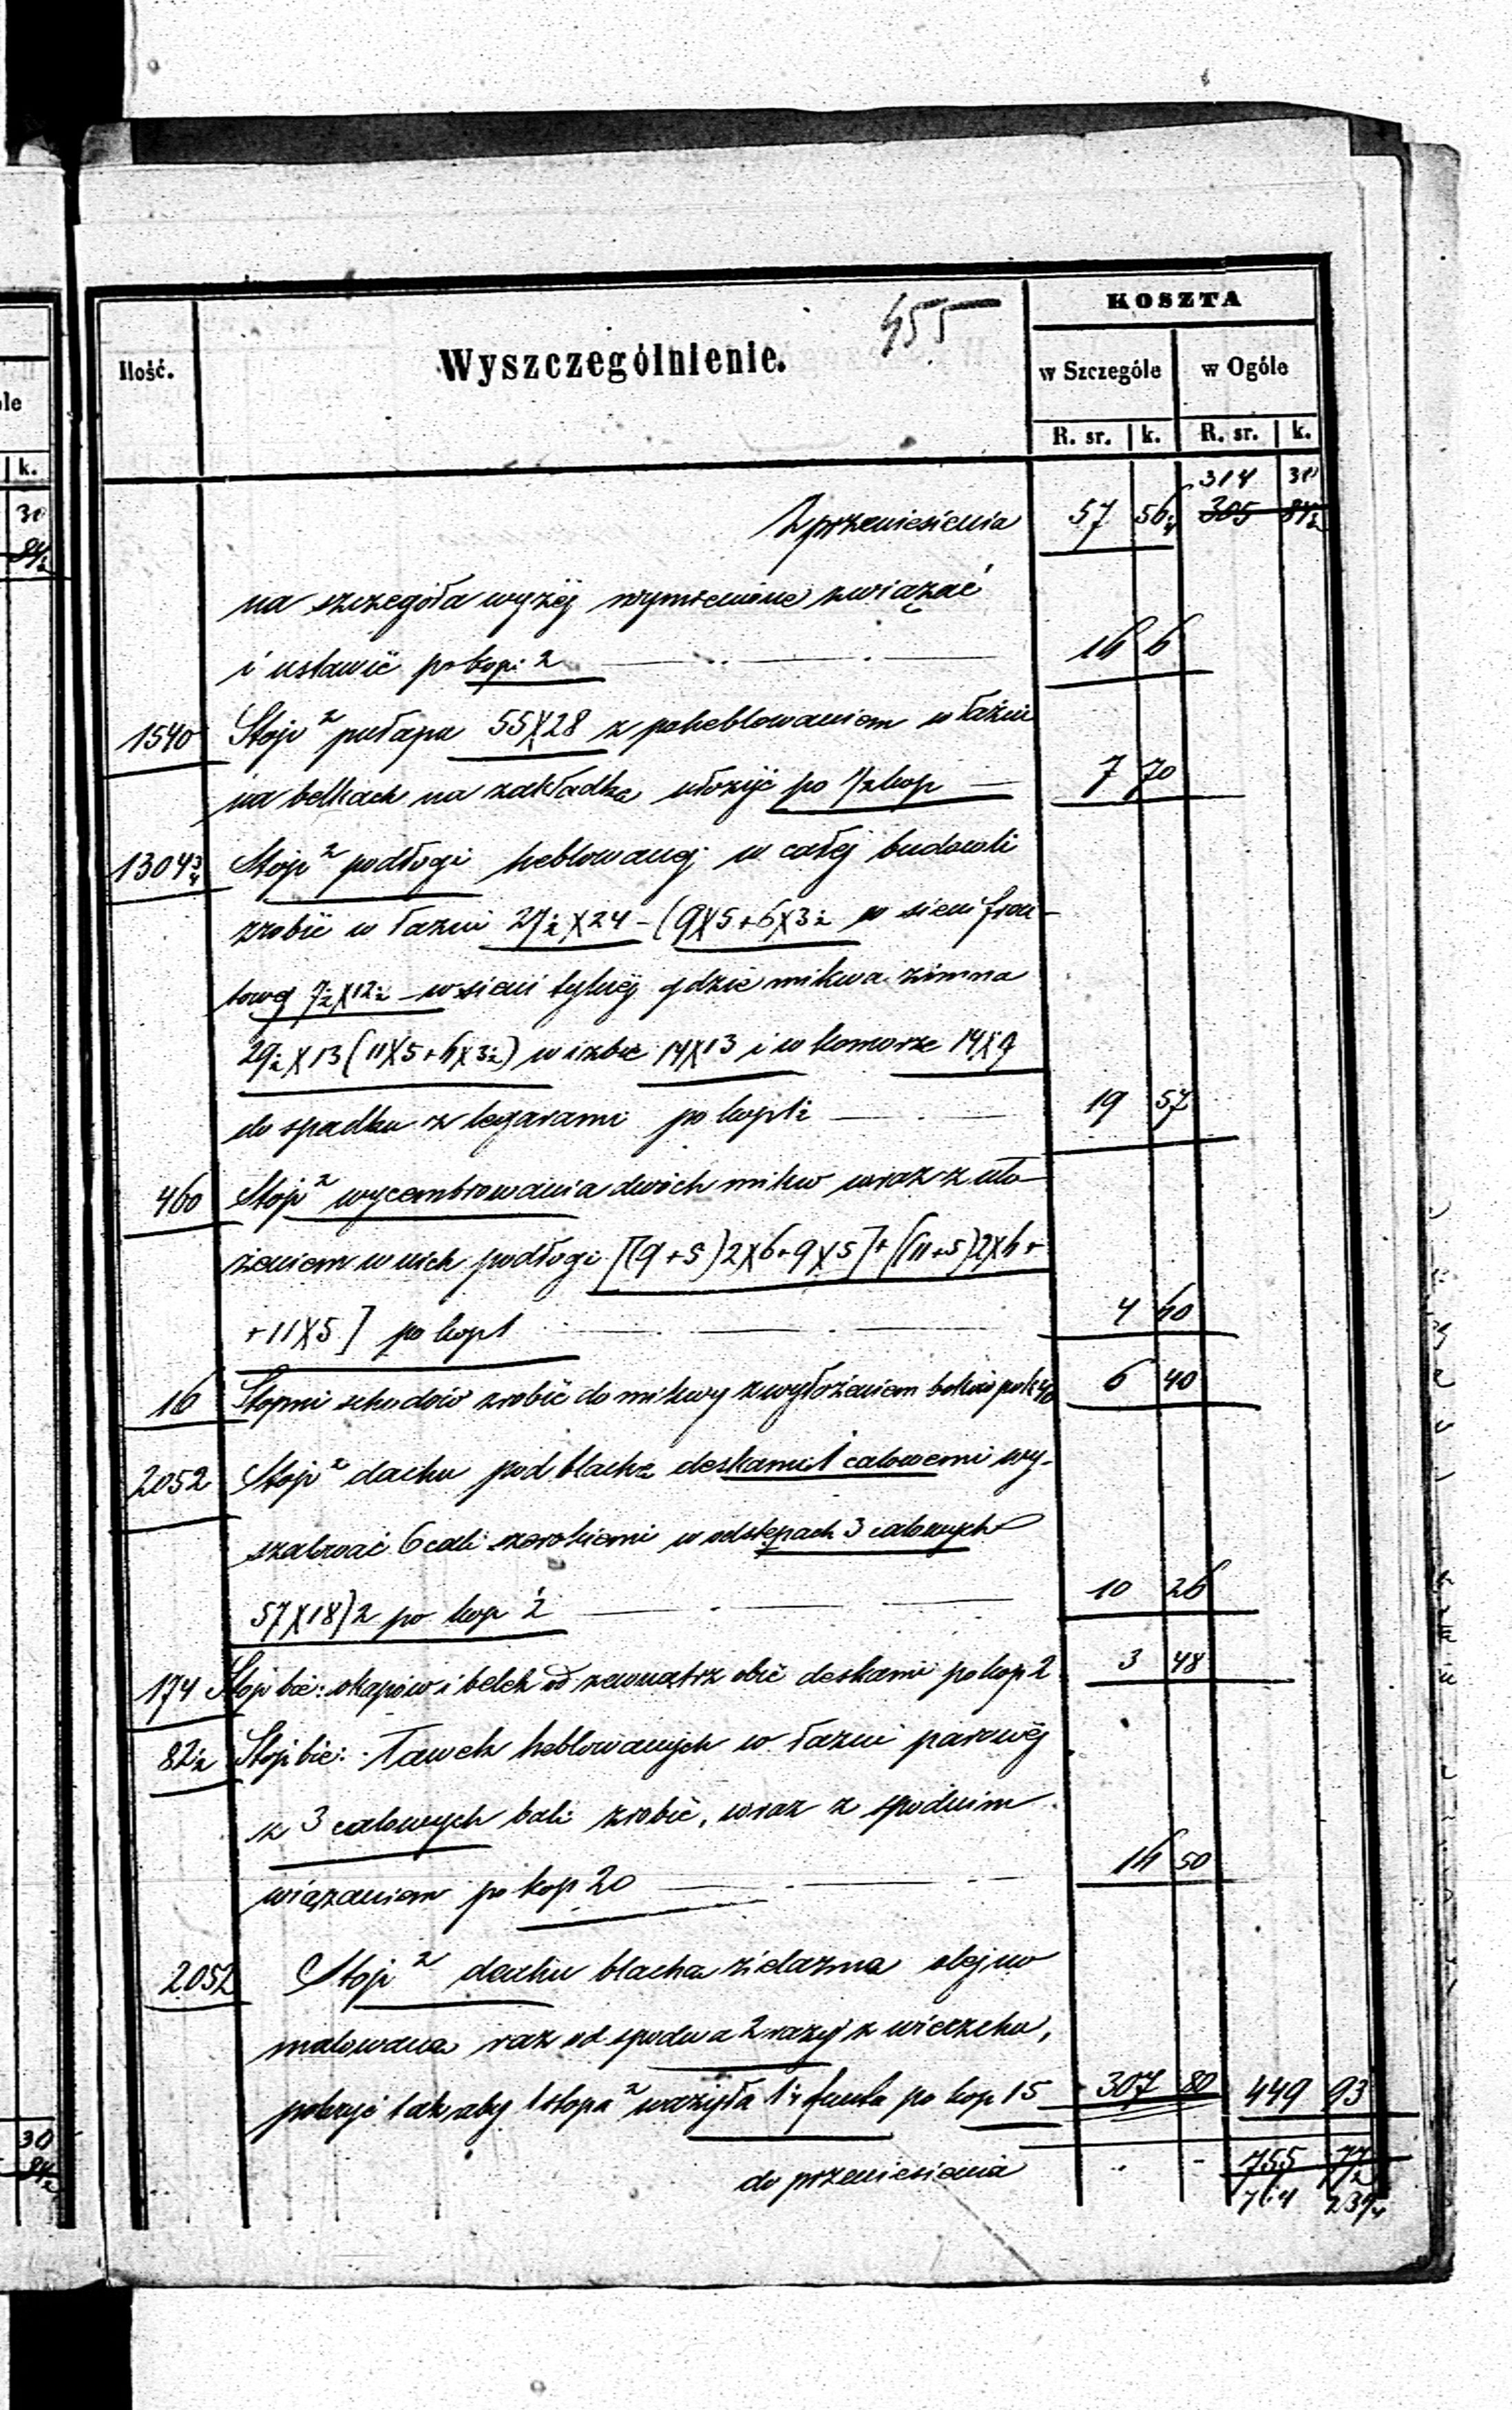 455
KOSZTA
Ilość. Wyszczególnienie. w Szczególe w Ogóle
R. sr. k. R. sr. k.
314 30
Z przeniesienia 57 56¼ 305 84½
na szczegóła wyżéj wymienione związać
i ustawić po kop: 2 16 6
1540 Stóp² pułapu 55X28 z poheblowaniem w łaźni
na belkach na zakładkę ułożyć po ½ kop 7 70
1304¾ Stóp² podłogi heblowanéj w całéj budowli
zrobić w łaźni 27½X24-(9X5+6X3½ w sieni fron-
towéj 7½X12½ w sieni tylnéj gdzie mikwa zimna
29½X13(11X5+6X3½) w izbie 14X13 i w komorze 14X9
do spadku z legarami po kop 1½ 19 57
460 Stóp² wycembrowania dwóch mikw wraz z uło-
żeniem w nich podłogi [(9+5)2X6+9X5]+[(11+5)2X6+
+11X5] po kop 1 4 60
16 Stopni schodów zrobić do mikwy z wyłożeniem boków po k 40 6 40
2052 Stóp² dachu pod blachę deskami 1 calowemi wy-
szalować 6 cali szerokiemi w odstępach 3 calowych
57X18)2 po kop ½ 10 26
174 Stóp bie: okapów i belek od zewnątrz obić deskami po kop 2 3 48
82½ Stóp bie: Ławek heblowanych w łaźni parowéj
z 3 calowych bali zrobić, wraz z spodnim
wiązaniem po kop 20 16 50
2052 Stóp² dachu blachą żielazną olejno
malowaną raz od spodu a 2 razy z wierzchu,
pokryć tak, aby 1 stopa² ważyła 1¼ funta po kop 15 307 80 449 93
do przeniesienia 755 77½
764 23¼
30
84½
k.
30
84½